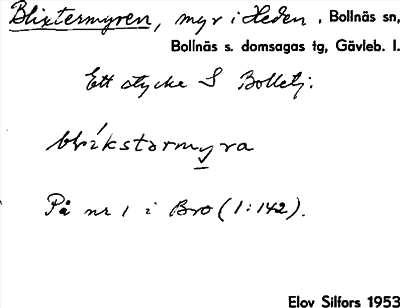 Blixtermyren, myr i Heden, Bollnäs sn,
Bollnäs s. domsagas tg, Gävleb. l.
Ett stycke S Bolletj:
blíkstərmyra
På nr 1 i Bro (1:142).
Elov Silfors 1953